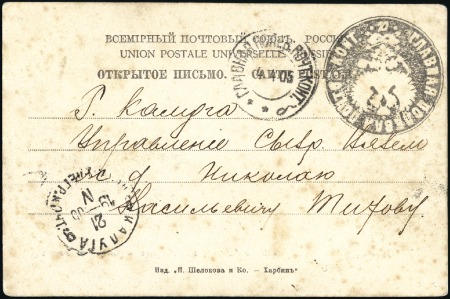 ВСЕМІРНЫЙ ПОЧТОВЫЙ СОЮЗЪ. РОССІЯ
UNION POSTALE UNIVERSELLE. RUSSIE
ОТКРЫТОЕ ПИСЬМО.
ГЛАВНАЯ ПОЛЕВ. ПОЧТ. КОНТ.
05
Г. Калуга
Управление Сызр. Вязем
ж. д. Николаю
Васильевичу Тихову
КАЛУГА
21
IV
Изд. „П. Щелокова и Ко. – Харбинъ"